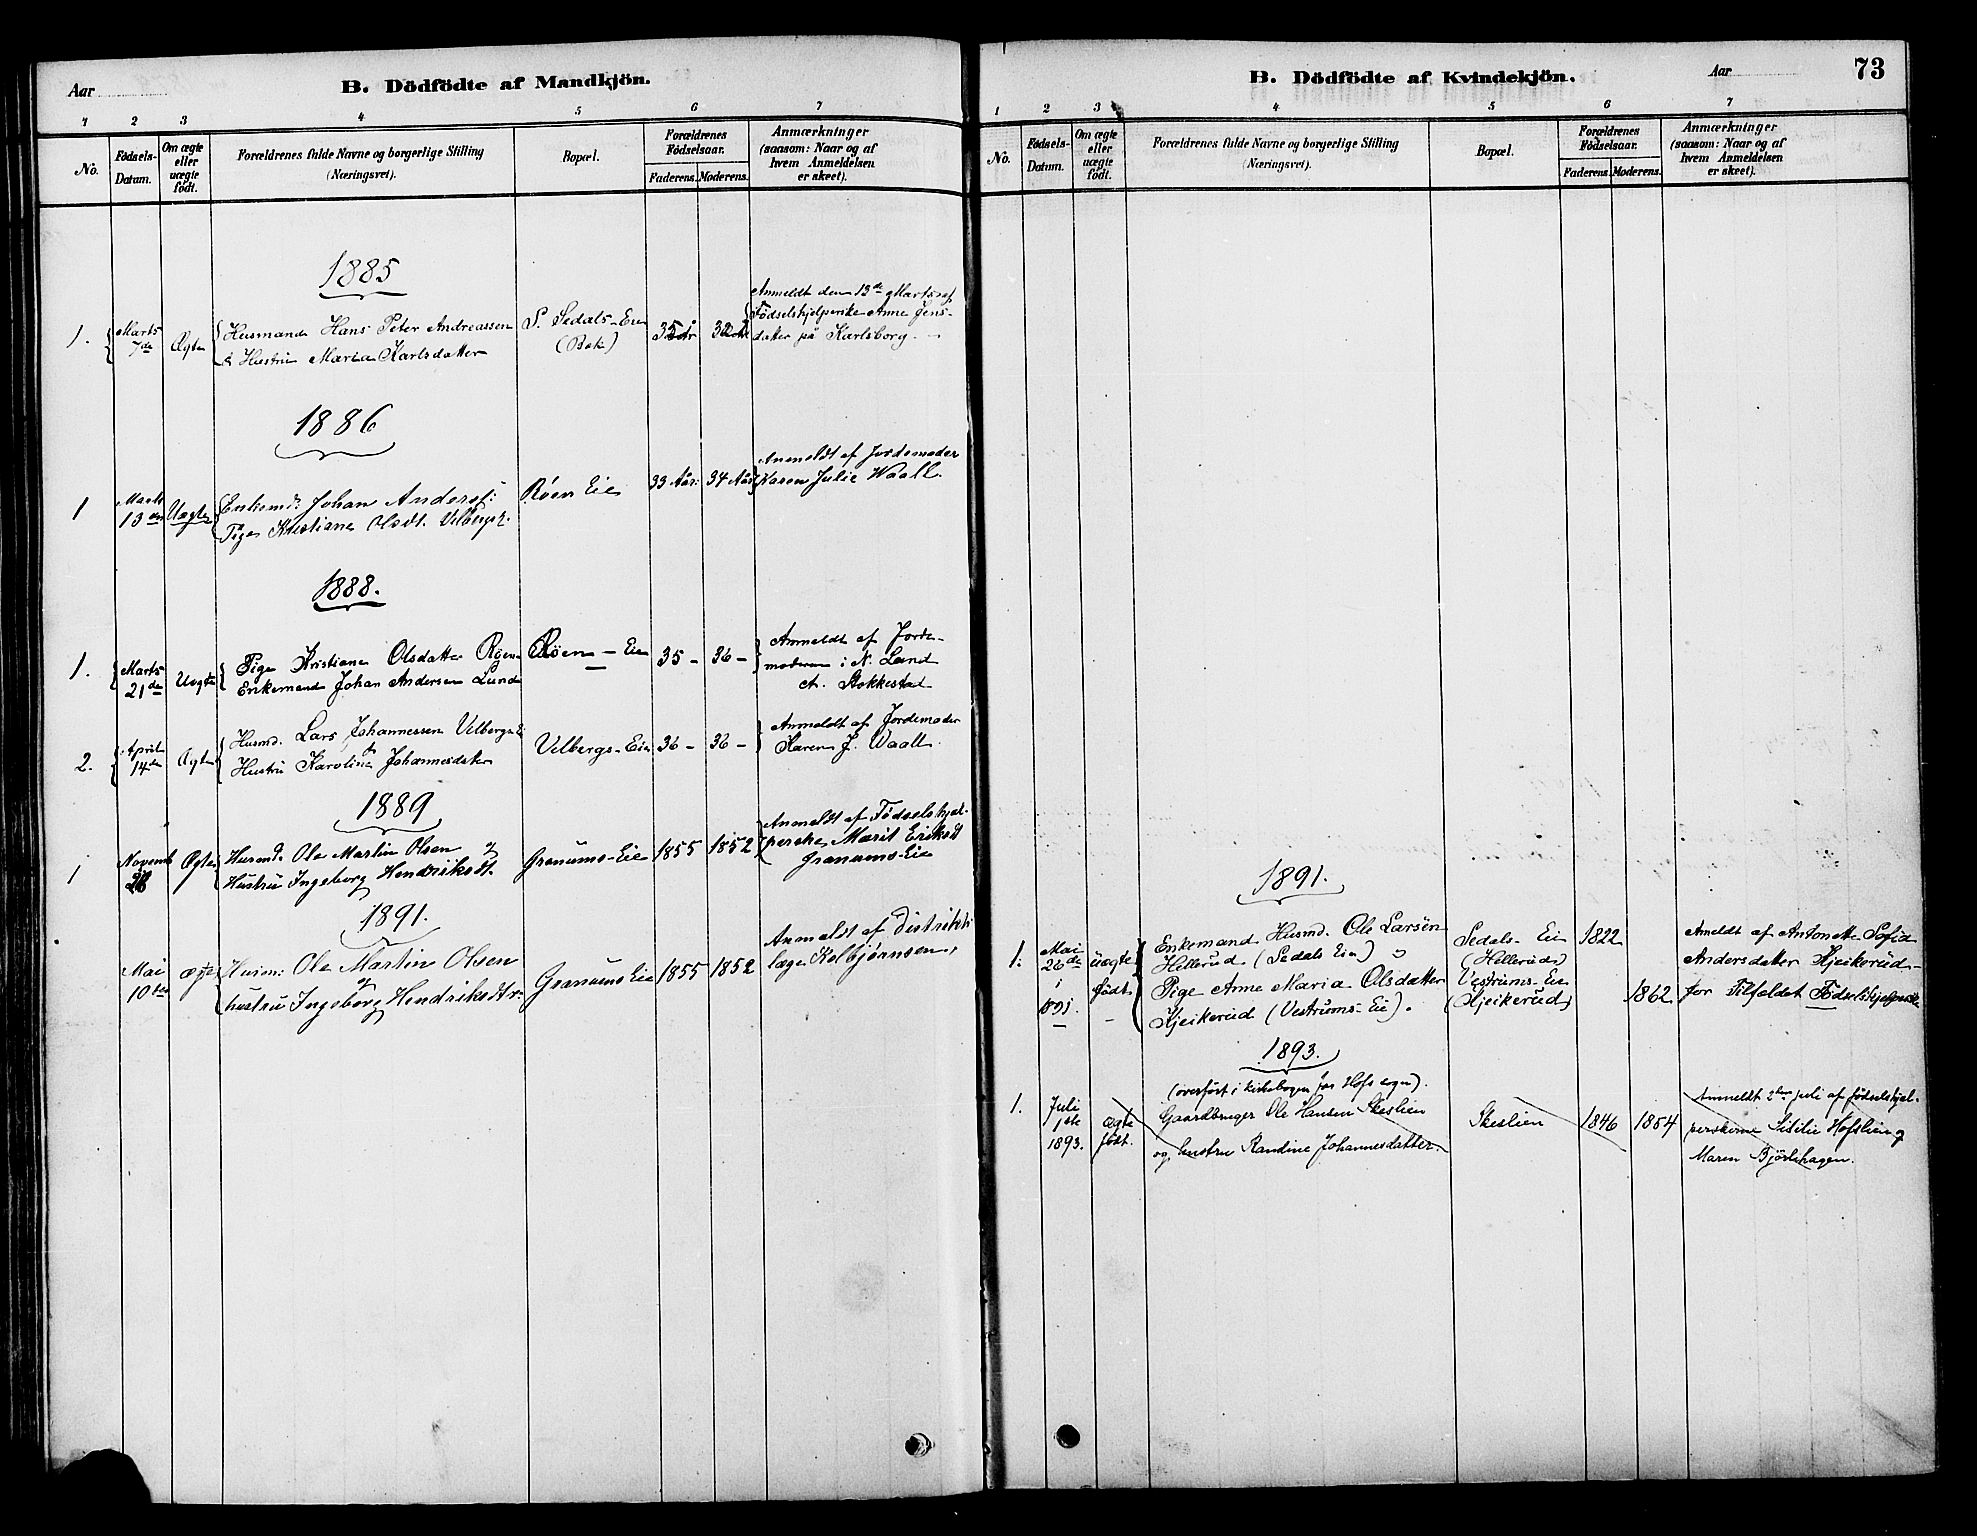 Aar
B. Dödfödte af Mandkjön.
1 2 3 4 5 6 7
No.
Födsels-
Datum.
Om ægte
eller
uægte
födt.
Forældrenes fulde Navne og borgerlige Stilling
(Næringsvei).
Bopæl.
Forældrenes
Födselsaar.
Faderens. Moderens.
Anmærkninger
(saasom: Naar og af
hvem Anmeldelsen
er skeet).
1885
1. Marts
7de
Ægte
Husmand Hans Peter Andreassen
& Hustru Maria Karlsdatter
S. Sedals-Eie
(Bak)
Anmeldt den 13de Marts af
Födselshjelperske Anne Jens-
datter på Karlsborg.
1886
1 Marts
13de
Uægte
Enkemd: Johan Anders:
Pige Kristiane Olsdt. Velbergs
Röen Eie
33 Aar: 34 Aar
Anmeldt af Jordemoder
Karen Julie Waall.
1888.
1. Marts
21de
Uægte
Pige Kristiane Olsdatter Röen
Enkemand Johan Andersen Lund
Röen-Eie
35 - 36 -
Anmeldt af Jorde-
moderen i N. Land
A. Stokkestad
2. April
14de
Ægte
Husmd. Lars Johannessen Velbergs
Hustru Karoline Johannesdatter
Velbergs-Eie
36 - 36 -
Anmeldt af Jordemoder
Karen J. Waall.
1889
1 Novemb
Ægte
Husmd. Ole Martin Olsen og
Hustru Ingeborg Hendriksdt.
Granums-Eie
1855 1852
Anmeldt af Födselshjæl-
perske Marit Eriksdt
Granums-Eie
1891.
Mai
10de
ægte
Husm: Ole Martin Olsen
og
hustru Ingeborg Hendriksdtr.
Granums Eie
1855 1852
Anmeldt af Distrikts
læge Kolbjørnsen.
B. Dödfödte af Kvindekjön.
Aar
73
1 2 3 4 5 6 7
No.
Födsels-
Datum.
Om ægte
eller
uægte
födt.
Forældrenes fulde Navne og borgerlige Stilling
(Næringsvei).
Bopæl.
Forældrenes
Födselsaar.
Faderens. Moderens.
Anmærkninger
(saasom: Naar og af
hvem Anmeldelsen
er skeet).
1891.
1. Mai
26de
1891.
uægte
födt.
Enkemand Husmd. Ole Larsen
Hellerud (Sedals Eie)
Pige Anne Maria Olsdatter
Kjeikerud (Vestrums-Eie).
Sedals- Eie
(Hellerud)
Vestrums-Eie
(Kjeikerud)
1822
1862
Ameldt af Antonette Sofia
Andersdatter Kjeikerud-
for Tilfældet Födselshjelperske
1893.
(overført i kirkebogen for Hofs sogn).
1. Juli
1ste
1893.
ægte
født.
Gaardbruger Ole Hansen Skeslien
og hustru Randine Johannesdatter.
Skeslien
1846 1854
Anmeldt 2den juli af fødselshjel-
perskerne Sisilie Hofslien og
Maren Bjørlshagen.